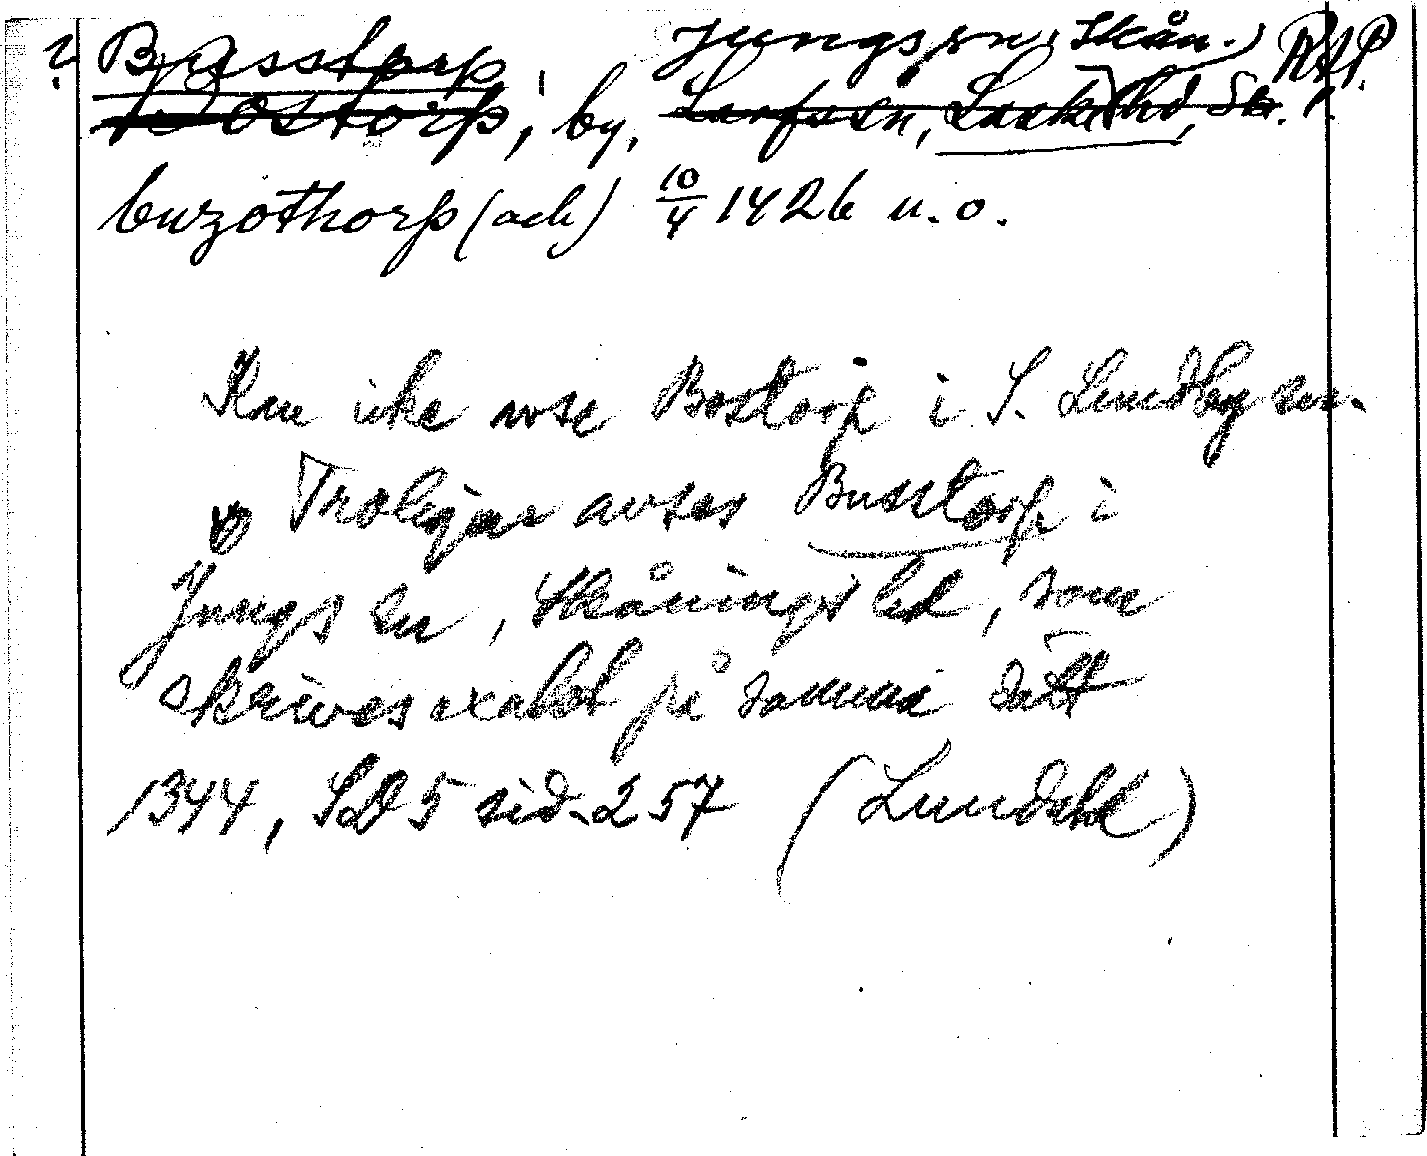 ? Busstorp, Jungs sn, Skån. RAP
Bostorp, by, sn, Laske hd, Sk. l.
buzothorp (ack) 10/4 1426 u. o.
Kan icke avse Bostorp i S. Lundby sn.
Troligen avses Busstorp i
Jungs sn, Skånings hd, som
skrives exakt på samma sätt
1344, SD 5 sid. 257 (Lundahl)